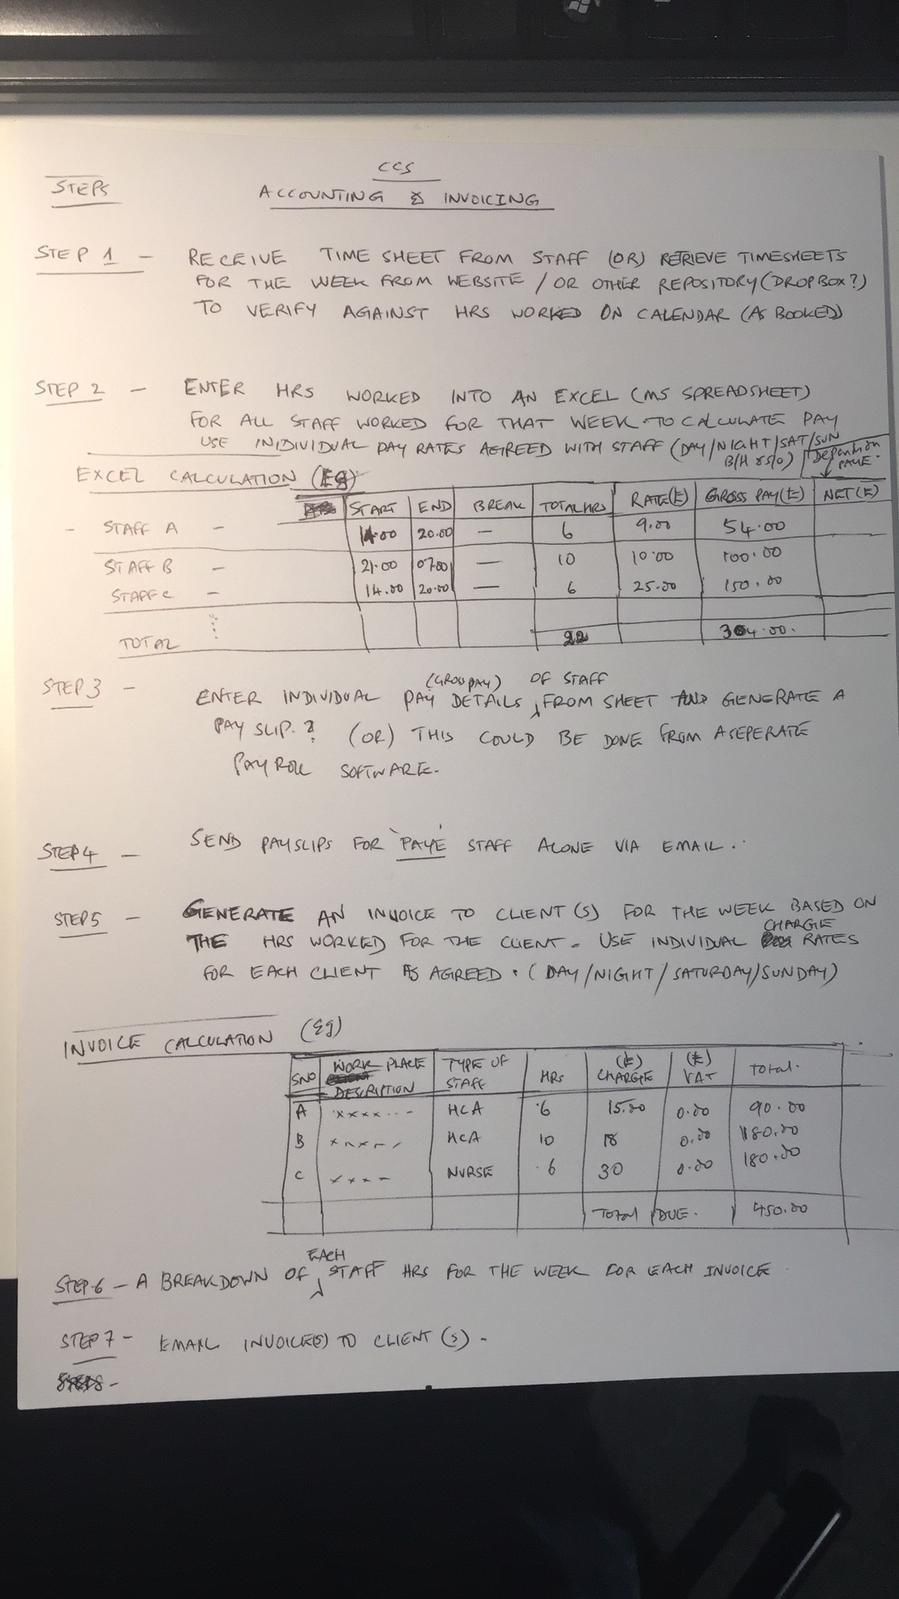 CCS
STEPS ACCOUNTING & INVOICING
STEP 1 - RECEIVE TIME SHEET FROM STAFF (OR) RETRIEVE TIMESHEETS
FOR THE WEEK FROM WEBSITE / OR OTHER REPOSITORY (DROPBOX?)
TO VERIFY AGAINST HRS WORKED ON CALENDAR (AS BOOKED)
STEP 2 - ENTER HRS WORKED INTO AN EXCEL (MS SPREADSHEET)
FOR ALL STAFF WORKED FOR THAT WEEK - TO CALCULATE PAY
USE INIDIVIDUAL PAY RATES AGREED WITH STAFF (DAY/NIGHT/SAT/SUN
B/H
PAYE.
EXCEL CALCULATION (Eg)
START END BREAK TOTAL HRS RATE(£) GROSS PAY(£) NET(£)
- STAFF A - 14.00 20.00 - 6 9.00 54.00
STAFF B - 21.00 0700 - 10 10.00 100.00
STAFF C - 14.00 20.00 - 6 25.00 150.00
TOTAL 22 304.00.
(GROSPAY) OF STAFF
STEP 3 - ENTER INDIVIDUAL PAY DETAILS FROM SHEET AND GENERATE A
PAY SLIP.? (OR) THIS COULD BE DONE FROM A SEPERATE
PAYROLL SOFTWARE.
STEP 4 - SEND PAYSLIPS FOR 'PAYE' STAFF ALONE VIA EMAIL..
STEP 5 - GENERATE AN INVOICE TO CLIENT(S) FOR THE WEEK BASED ON
CHARGE
THE HRS WORKED FOR THE CLIENT - USE INDIVIDUAL RATES
FOR EACH CLIENT AS AGREED. (DAY/NIGHT/SATURDAY/SUNDAY)
INVOICE CALCULATION (Eg)
SNO WORK PLACE DESCRIPTION TYPE OF STAFF HRS (£) CHARGE (£) VAT TOTAL.
A xxxx...- HCA 6 15.00 0.00 90.00
B HCA 10 18 0.00 180.00
C NURSE 6 30 0.00 180.00
TOTAL DUE. 450.00
EACH
STEP 6 - A BREAKDOWN OF STAFF HRS FOR THE WEEK FOR EACH INVOICE
STEP 7 - EMAIL INVOICE(S) TO CLIENT(S) -